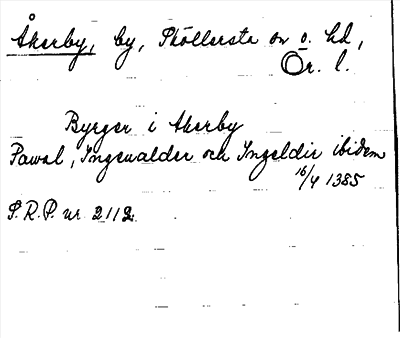 Åkerby, by, Sköllersta sn o. hd,
Ör. l.
Byrger i Akerby
Pawal, Ingewalder och Ingeldir ibidem
16/4 1385
S.R.P. nr 2112.